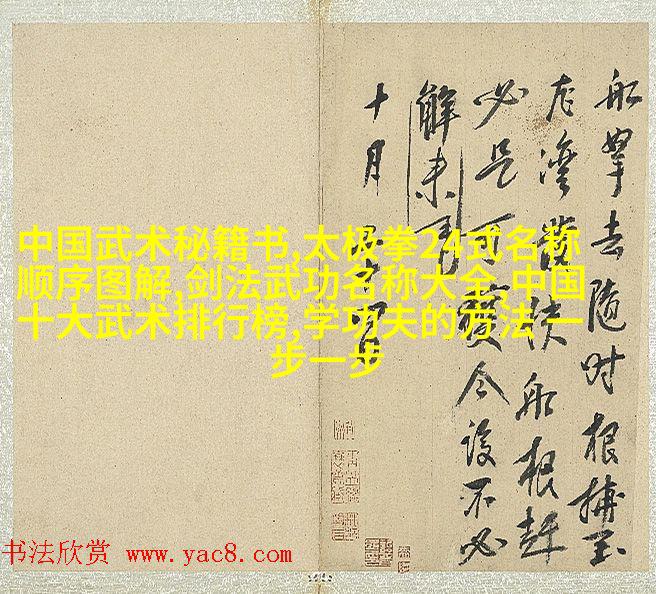 船拏去随时根捕至
湾船根赶
必是可今後不必
解来
十月
中国武术秘籍书,太极拳24式名称
顺序图解,剑法武功名称大全,中国
十大武术排行榜,学功夫的方法一
步一步
书法欣赏 www.yac8.com